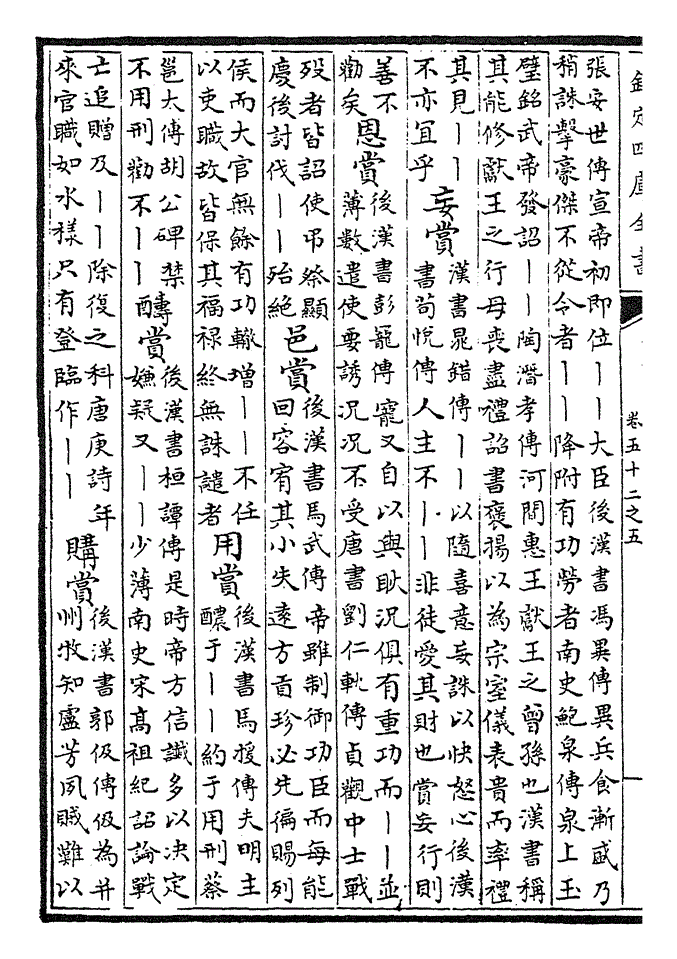 欽定四庫全書
卷五十二之五
張安世傳宣帝初即位丨丨大臣後漢書馮異傳異兵食漸盛乃
稍誅擊豪傑不從令者丨丨降附有功勞者南史鮑泉傳泉上玉
璧銘武帝發詔丨丨陶潛孝傳河間惠王獻王之曾孫也漢書稱
其能修獻王之行母喪盡禮詔書褒揚以為宗室儀表貴而率禮
其見丨丨
不亦宜乎
妄賞
漢書晁錯傳丨丨以隨喜意妄誅以快怒心後漢
書荀悅傳人主不丨丨非徒愛其財也賞妄行則
善不
勸矣
恩賞
後漢書彭寵傳寵又自以與耿況俱有重功而丨丨並
薄數遣使要誘況況不受唐書劉仁軌傳貞觀中士戰
歿者皆詔使弔祭顯
慶後討伐丨丨殆絕
邑賞
後漢書馬武傳帝雖制御功臣而每能
回容宥其小失遠方貢珍必先徧賜列
侯而大官無餘有功輙增丨丨不任
以吏職故皆保其福祿終無誅譴者
用賞
後漢書馬援傳夫明主
醲于丨丨約于用刑蔡
邕太傅胡公碑禁
不用刑勸不丨丨
醻賞
後漢書桓譚傳是時帝方信讖多以決定
嫌疑又丨丨少薄南史宋髙祖紀詔論戰
亡追贈及丨丨除復之科唐庚詩年
來官職如水樣只有登臨作丨丨
購賞
後漢書郭伋傳伋為并
州牧知盧芳夙賊難以